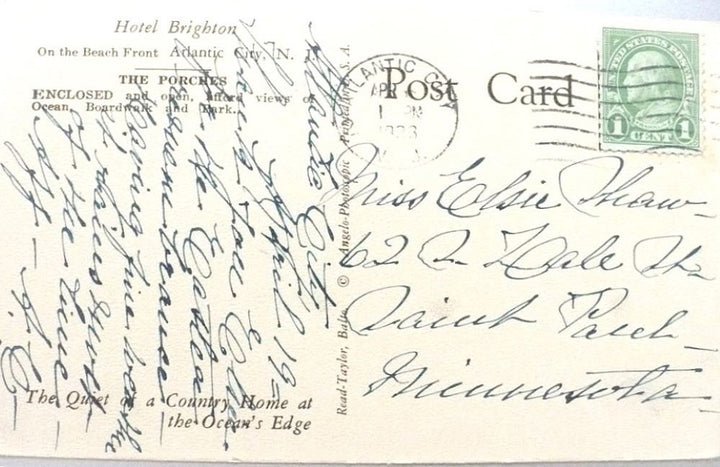 Hotel Brighton
On the Beach Front Atlantic City, N. J.
THE PORCHES
ENCLOSED and open, afford views of
Ocean, Boardwalk and Park.
Atlantic City
April 19-
Thanks for Elsie
for the Easter
remembrance
Having fine weather
&
of the time
The Quiet of a Country Home at
the Ocean's Edge
Read-Taylor, Balto. © Angelo-Photoscopic U. S. A.
Post Card
ATLANTIC CITY
APR
1 PM
N. J.
UNITED STATES POSTAGE
1 CENT 1
Miss Elsie Shaw-
62 Dale St-
Saint Paul-
Minnesota-